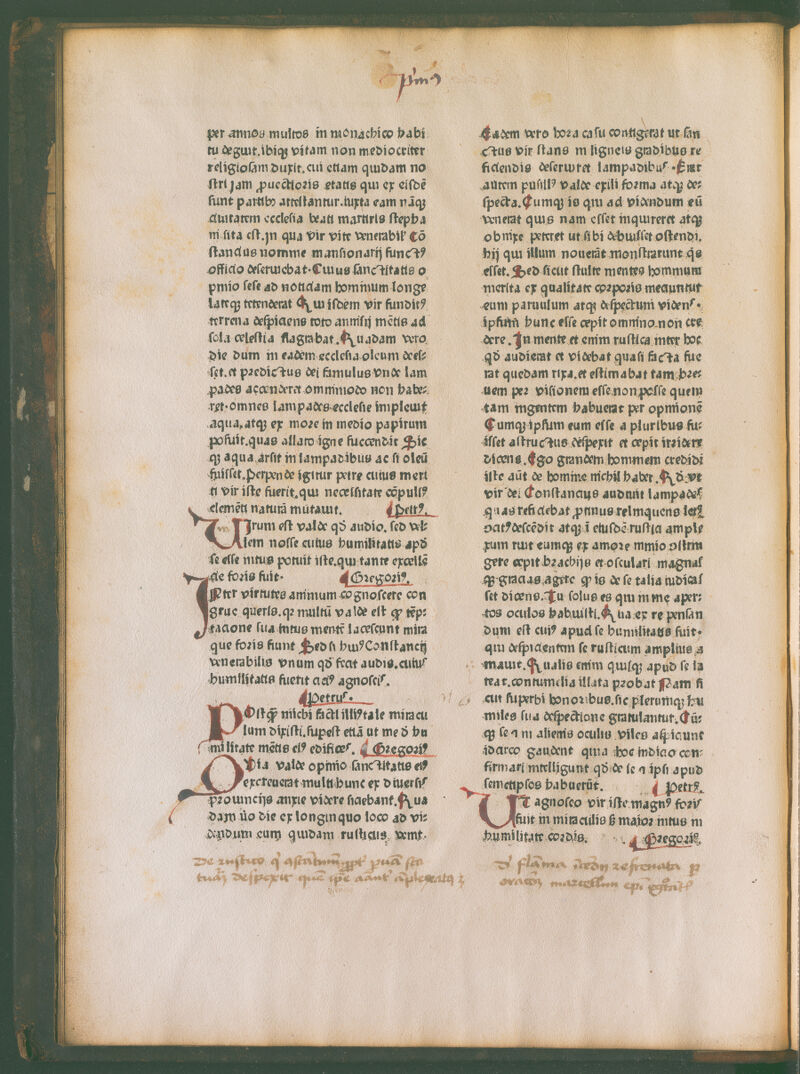 pm9
per annos multos in monachico habi
tu deguit. ibiqꝫ vitam non mediocriter
religiosam duxit. cui etiam quidam no
stri jam ꝓuectioris etatis qui ex eisdē
sunt partibꝰ attestantur. iuxta eam nāqꝫ
ciuitatem ecclesia beati martiris stepha
ni sita est. jn qua vir vite venerabił Cō
standus nomine mansionarij functꝰ
officio deseruiebat. Cuius sanctitatis o
pinio sese ad noticiam hominum longe
lateqꝫ tetenderat Qui isdem vir funditꝰ
terrena despiciens toto annisu mētis ad
sola celestia flagrabat. Quadam vero
die dum in eadem ecclesia oleum dees-
set. et predictus dei famulus vnde lam
pades accenderet omnimodo non habe-
ret. omnes lampades ecclesie impleuit
aqua. atqꝫ ex more in medio papirum
posuit. quas allato igne succendit Sic
qꝫ aqua arsit in lampadibus ac si oleū
fuisset. Perpende igitur petre cuius meri
ti vir iste fuerit. qui necessitate cōpulsꝰ
elemēti naturā mutauit. Petrꝰ.
Uirum est valde qđ audio. sed vel-
lem nosse cuius humilitatis apđ
se esse intus potuit iste. qui tante excellē
cie foris fuit. Gregoriꝰ.
INter virtutes animum cognoscere con
grue queris. qꝫ multū valde est qꝙ tēp-
tacione sua intus mentē lacescunt mira
que foris fiunt Sed si huiꝰ Constancij
venerabilis vnum qđ fecit audis. cuiuſ
humilitatis fuerit citiꝰ agnosciſ.
Petruſ.
POstꝙ̄ michi facti illiꝰ tale miracu
lum dixisti. supest etiā ut me đ hu
militate mētis eiꝰ edificeſ. Gregoriꝰ
QUia valde opinio sanctitatis eiꝰ
excreuerat multi hunc ex diuersiſ
prouincijs anxie videre siciebant. Qua
dam ꝟo die ex longinquo loco ad vi-
dendum eum quidam rusticus venit.
Eadem vero hora casu contigerat ut san
ctus vir stans in ligneis gradibus re
ficiendis deseruiret lampadibuſ. Erat
autem pusillꝰ valde exili forma atqꝫ de-
specta. Cumqꝫ is qui ad videndum eū
venerat quis nam esset inquireret atqꝫ
obnixe peteret ut sibi debuisset ostendi.
hij qui illum nouerāt monstrarunt qͥs
esset. Sed sicut stulte mentes hominum
merita ex qualitate corporis meciuntur
eum paruulum atqꝫ despectum videnſ.
ipsum hunc esse cepit omnino non cre
dere. In mente et enim rustica inter hoc
qđ audierat et videbat quasi facta fue
rat quedam rixa. et estimabat tam bre-
uem per visionem esse non posse quem
tam ingentem habuerat per opinionē
Cumqꝫ ipsum eum esse a pluribus fu-
isset astructus despexit et cepit irridere
dicens. Ego grandem hominem credidi
iste aūt de homine nichil habet. Qđ vt
vir dei Constancius audiuit lampadeſ
quas reficiebat ꝓtinus relinquens letꝰ
descēdit atqꝫ ī eiusdē rustici ample
xum ruit eumqꝫ ex amore nimio ꝯstrin
gere cepit brachijs et osculari magnaſ
qꝫ gracias agere qꝙ is de se talia iudicaſ
set dicens. Tu solus es qui in me aper-
tos oculos habuisti. Qua ex re pensan
dum est cuiꝰ apud se humilitatis fuit.
qui despicientem se rusticum amplius a
mauit. Qualis enim quisqꝫ apud se la
teat. contumelia illata probat Nam si
cut superbi honoribus. sic plerumqꝫ hu
miles sua despectione gratulantur. Cū-
qꝫ se ⁊ in alienis oculis viles aspiciunt
idcirco gaudent quia hoc iudicio con-
firmari intelligunt qđ de se ⁊ ipsi apud
semetipsos habuerūt. Petrꝰ.
UT agnosco vir iste magnꝰ foriſ
fuit in miraculis sꝫ maior intus in
humilitate cordis. Gregoriꝰ.
De rustico
despexit
De flāma refrenata ꝑ
oracōꝫ marcellini epi